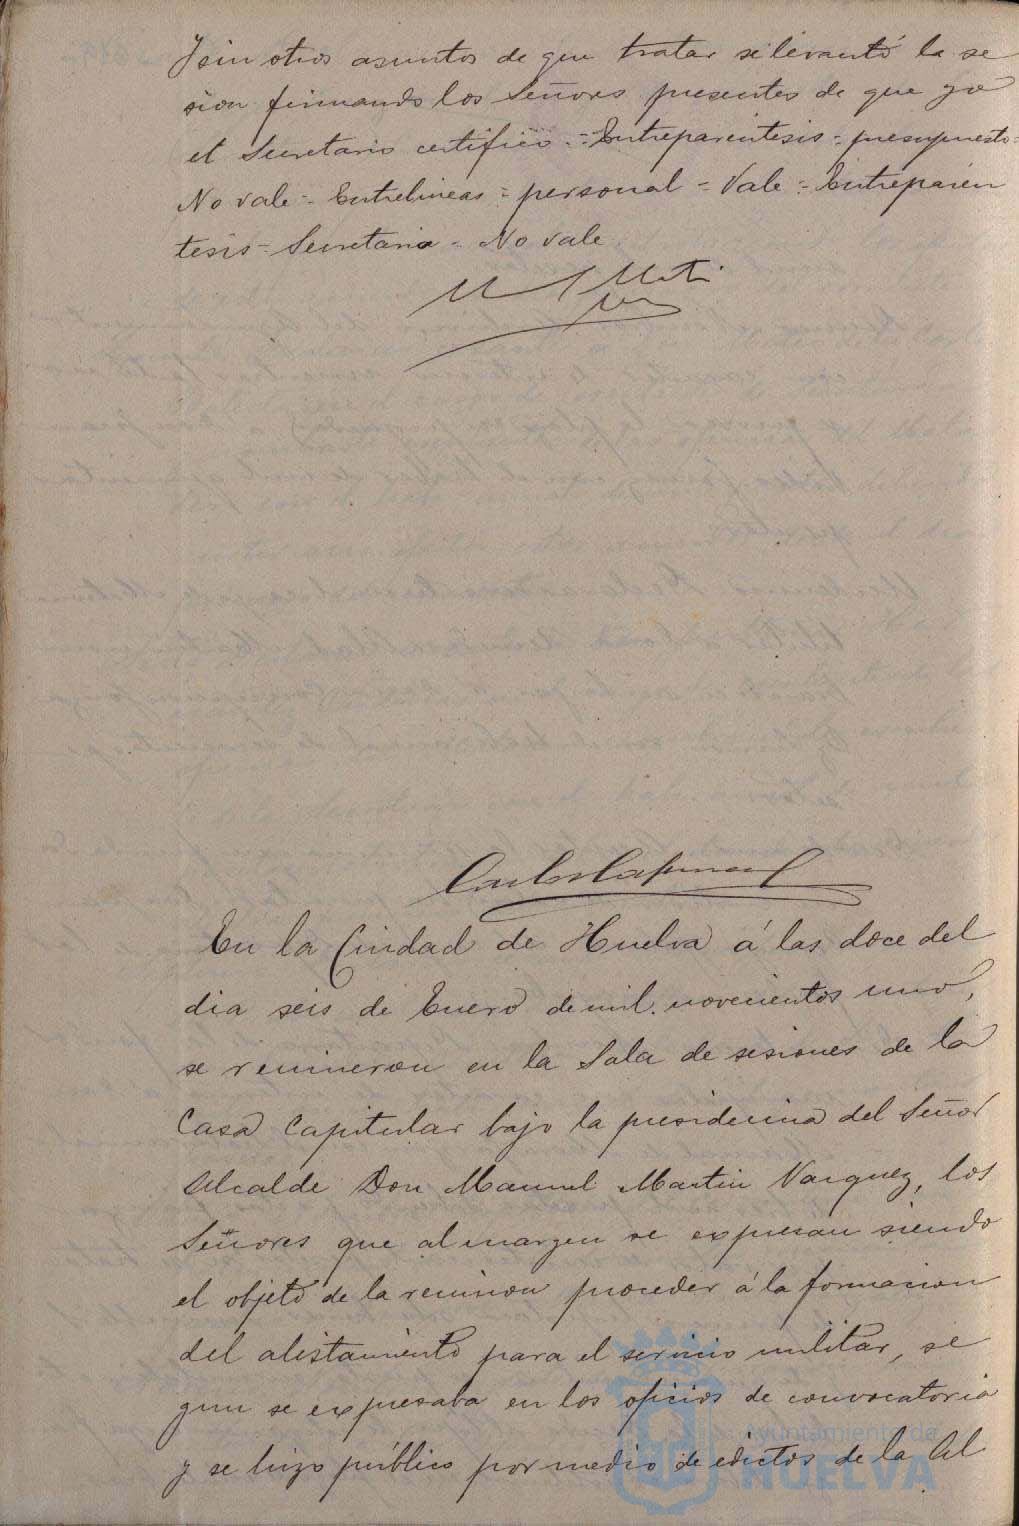 Y sin otros asuntos de que tratar se levantó la se
sion firmando los Señores presentes de que yo
el Secretario certifico.=Entreparéntesis=presupuesto=
No vale=Entrelineas=personal=Vale=Entreparén
tesis=Secretaria=No vale
En la Ciudad de Huelva á las doce del
dia seis de Enero de mil novecientos uno,
se reunieron en la Sala de sesiones de la
Casa Capitular bajo la presidencia del Señor
Alcalde Don Manuel Martin Vazquez, los
Señores que al margen se expresan siendo
el objeto de la reunion proceder á la formacion
del alistamiento para el servicio militar, se
gun se expresaba en los oficios de convocatoria
y se hizo público por medio de edictos de la Al
Ayuntamiento de
HUELVA